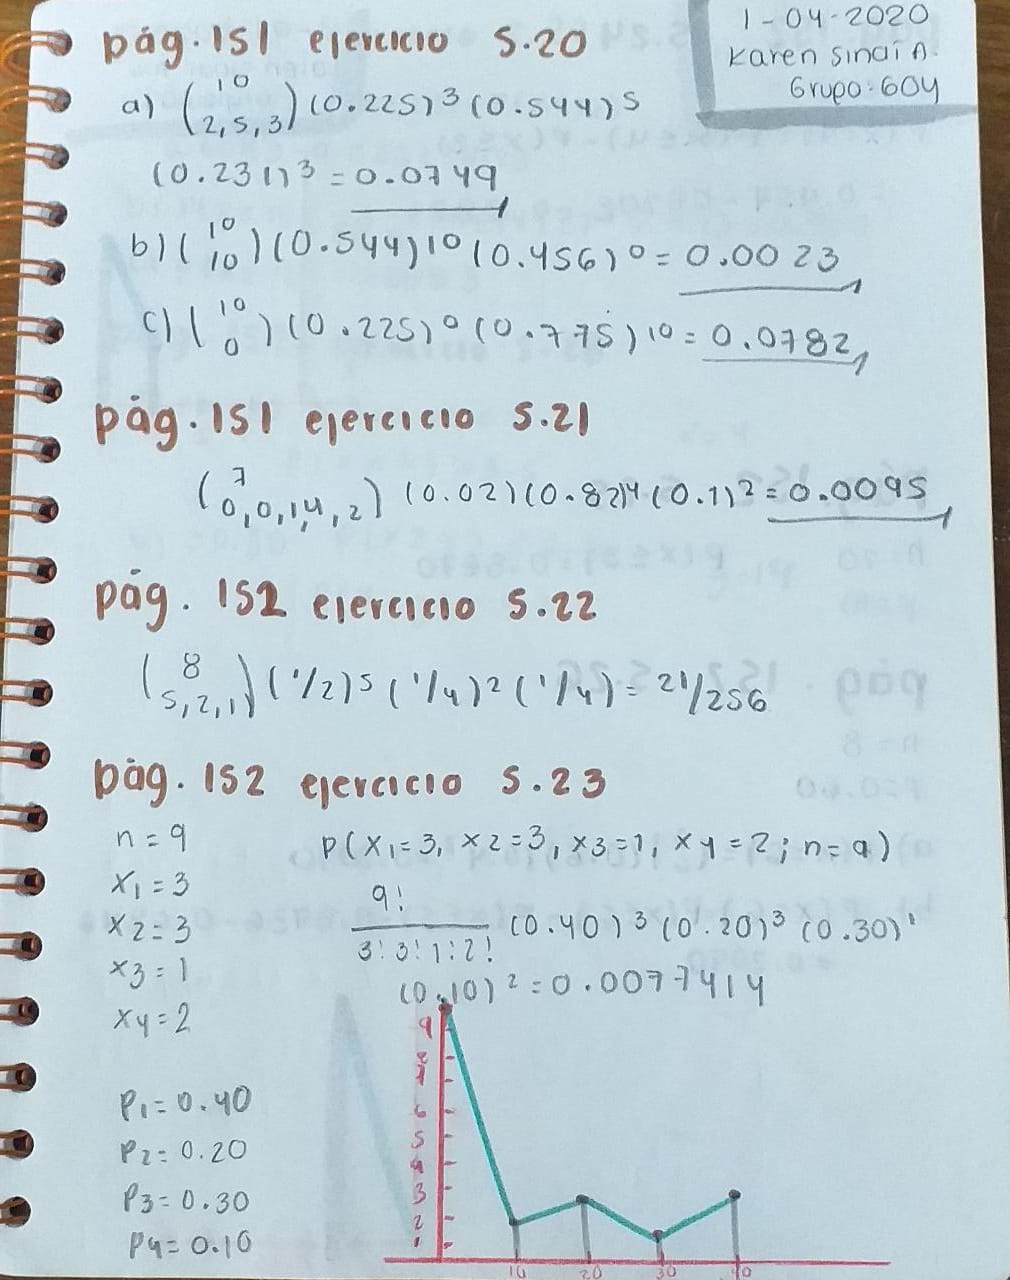 1-04-2020
Karen Sinaí A.
Grupo: 604
pág. 151 ejercicio 5.20
a) (10 2,5,3) (0.225)³ (0.544)⁵
(0.231)³ = 0.0749
b) (10 10) (0.544)10 (0.456)0 = 0.0023
c) (10 0) (0.225)0 (0.775)10 = 0.0782
pág. 151 ejercicio 5.21
(7 0,0,1,4,2) (0.02)(0.82)4 (0.1)2 = 0.0095
pág. 152 ejercicio 5.22
(8 5,2,1) (1/2)5 (1/4)2 (1/4) = 21/256
pág. 152 ejercicio 5.23
n = 9
x1 = 3
x2 = 3
x3 = 1
x4 = 2
P1 = 0.40
P2 = 0.20
P3 = 0.30
P4 = 0.10
P(x1=3, x2=3, x3=1, x4=2; n=9)
9!
3!3!1!2! (0.40)3 (0.20)3 (0.30)1
(0.10)2 = 0.0077414
9
8
7
6
5
4
3
2
1
10 20 30 40